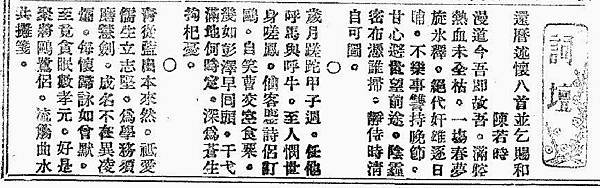 詞壇
還曆述懷八首並乞賜和
陳若時
漫道今吾即故吾。滿腔
熱血未全枯。一場春夢
旋水釋。絕代奸雄逐日
哺。不樂事讐持晚節。
甘心避世望前途。陰霾
密布憑誰掃。靜待時清
自可圖。
○
歲月蹉跎甲子週。任他
呼馬與呼牛。至人憫世
身嗟鳳。傲客盟詩侶訂
鷗。自笑曹交空食粟。
幾如彭澤早回頭。干戈
滿地何時定。深為蒼生
徇杞憂。
○
青從藍出本來然。祇愛
儒生立志堅。為學務須
磨慧劍。成名不在異凌
煙。每懷歸詠如曾默。
至竟貪眠數孝元。好是
聚將鷗鷺侶。流觴曲水
共擁箋。